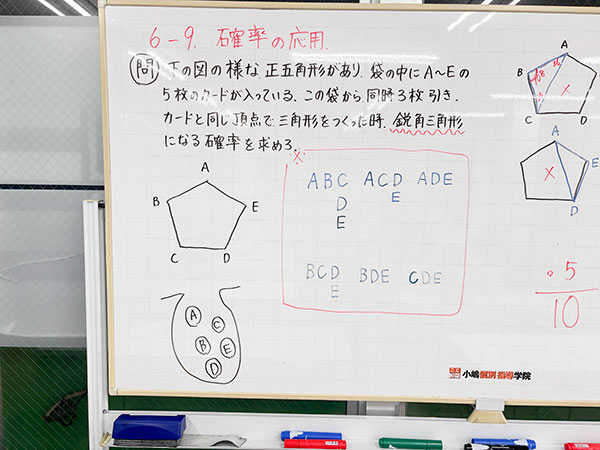 6-9. 確率の応用.
問 下の図の様な正五角形があり、袋の中にA〜Eの
5枚のカードが入っている。この袋から同時3枚引き、
カードと同じ頂点で三角形をつくった時、鋭角三角形
になる確率を求める。
×
ABC ACD ADE
D E
E
BCD BDE CDE
E
A
B
E
C
D
A
C
B
E
D
A
B
C
D
×
A
×
D
5
10
小嶋個別指導学院